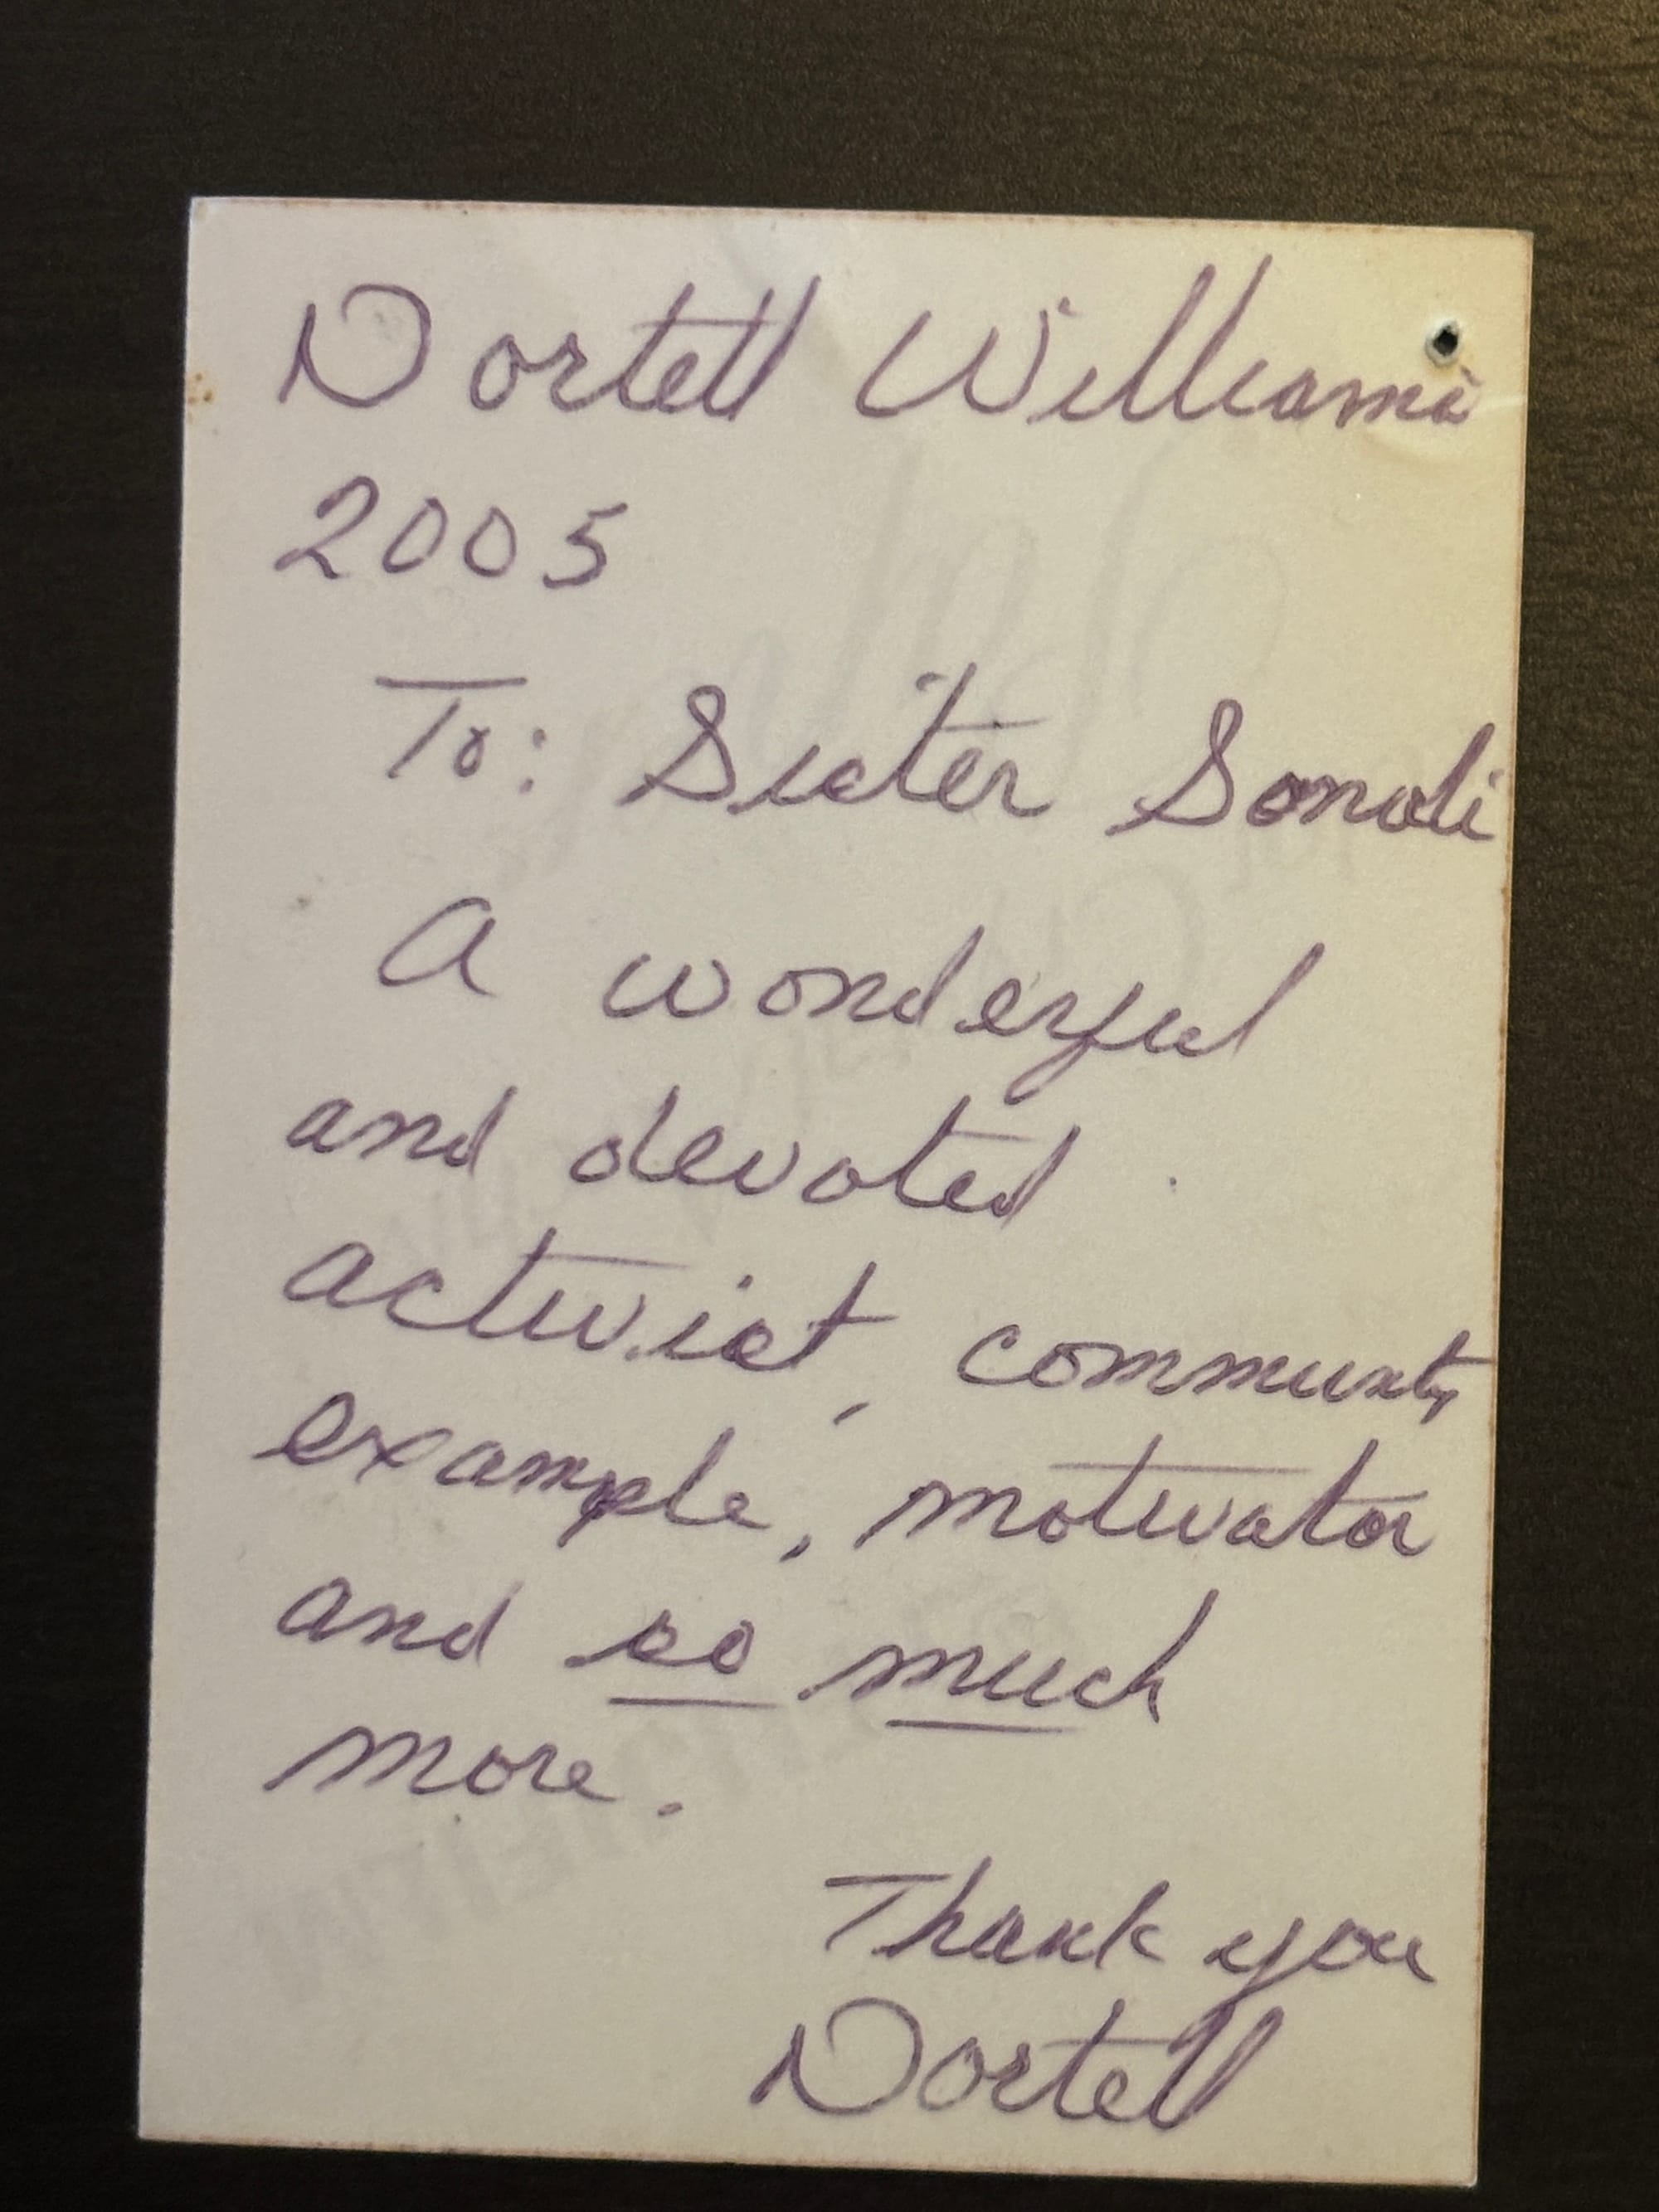 Dortell Williams
2005
To: Sister Sondi
A wonderful
and devoted
activist, community
example, motivator
and so much
more.
Thank you
Dortell